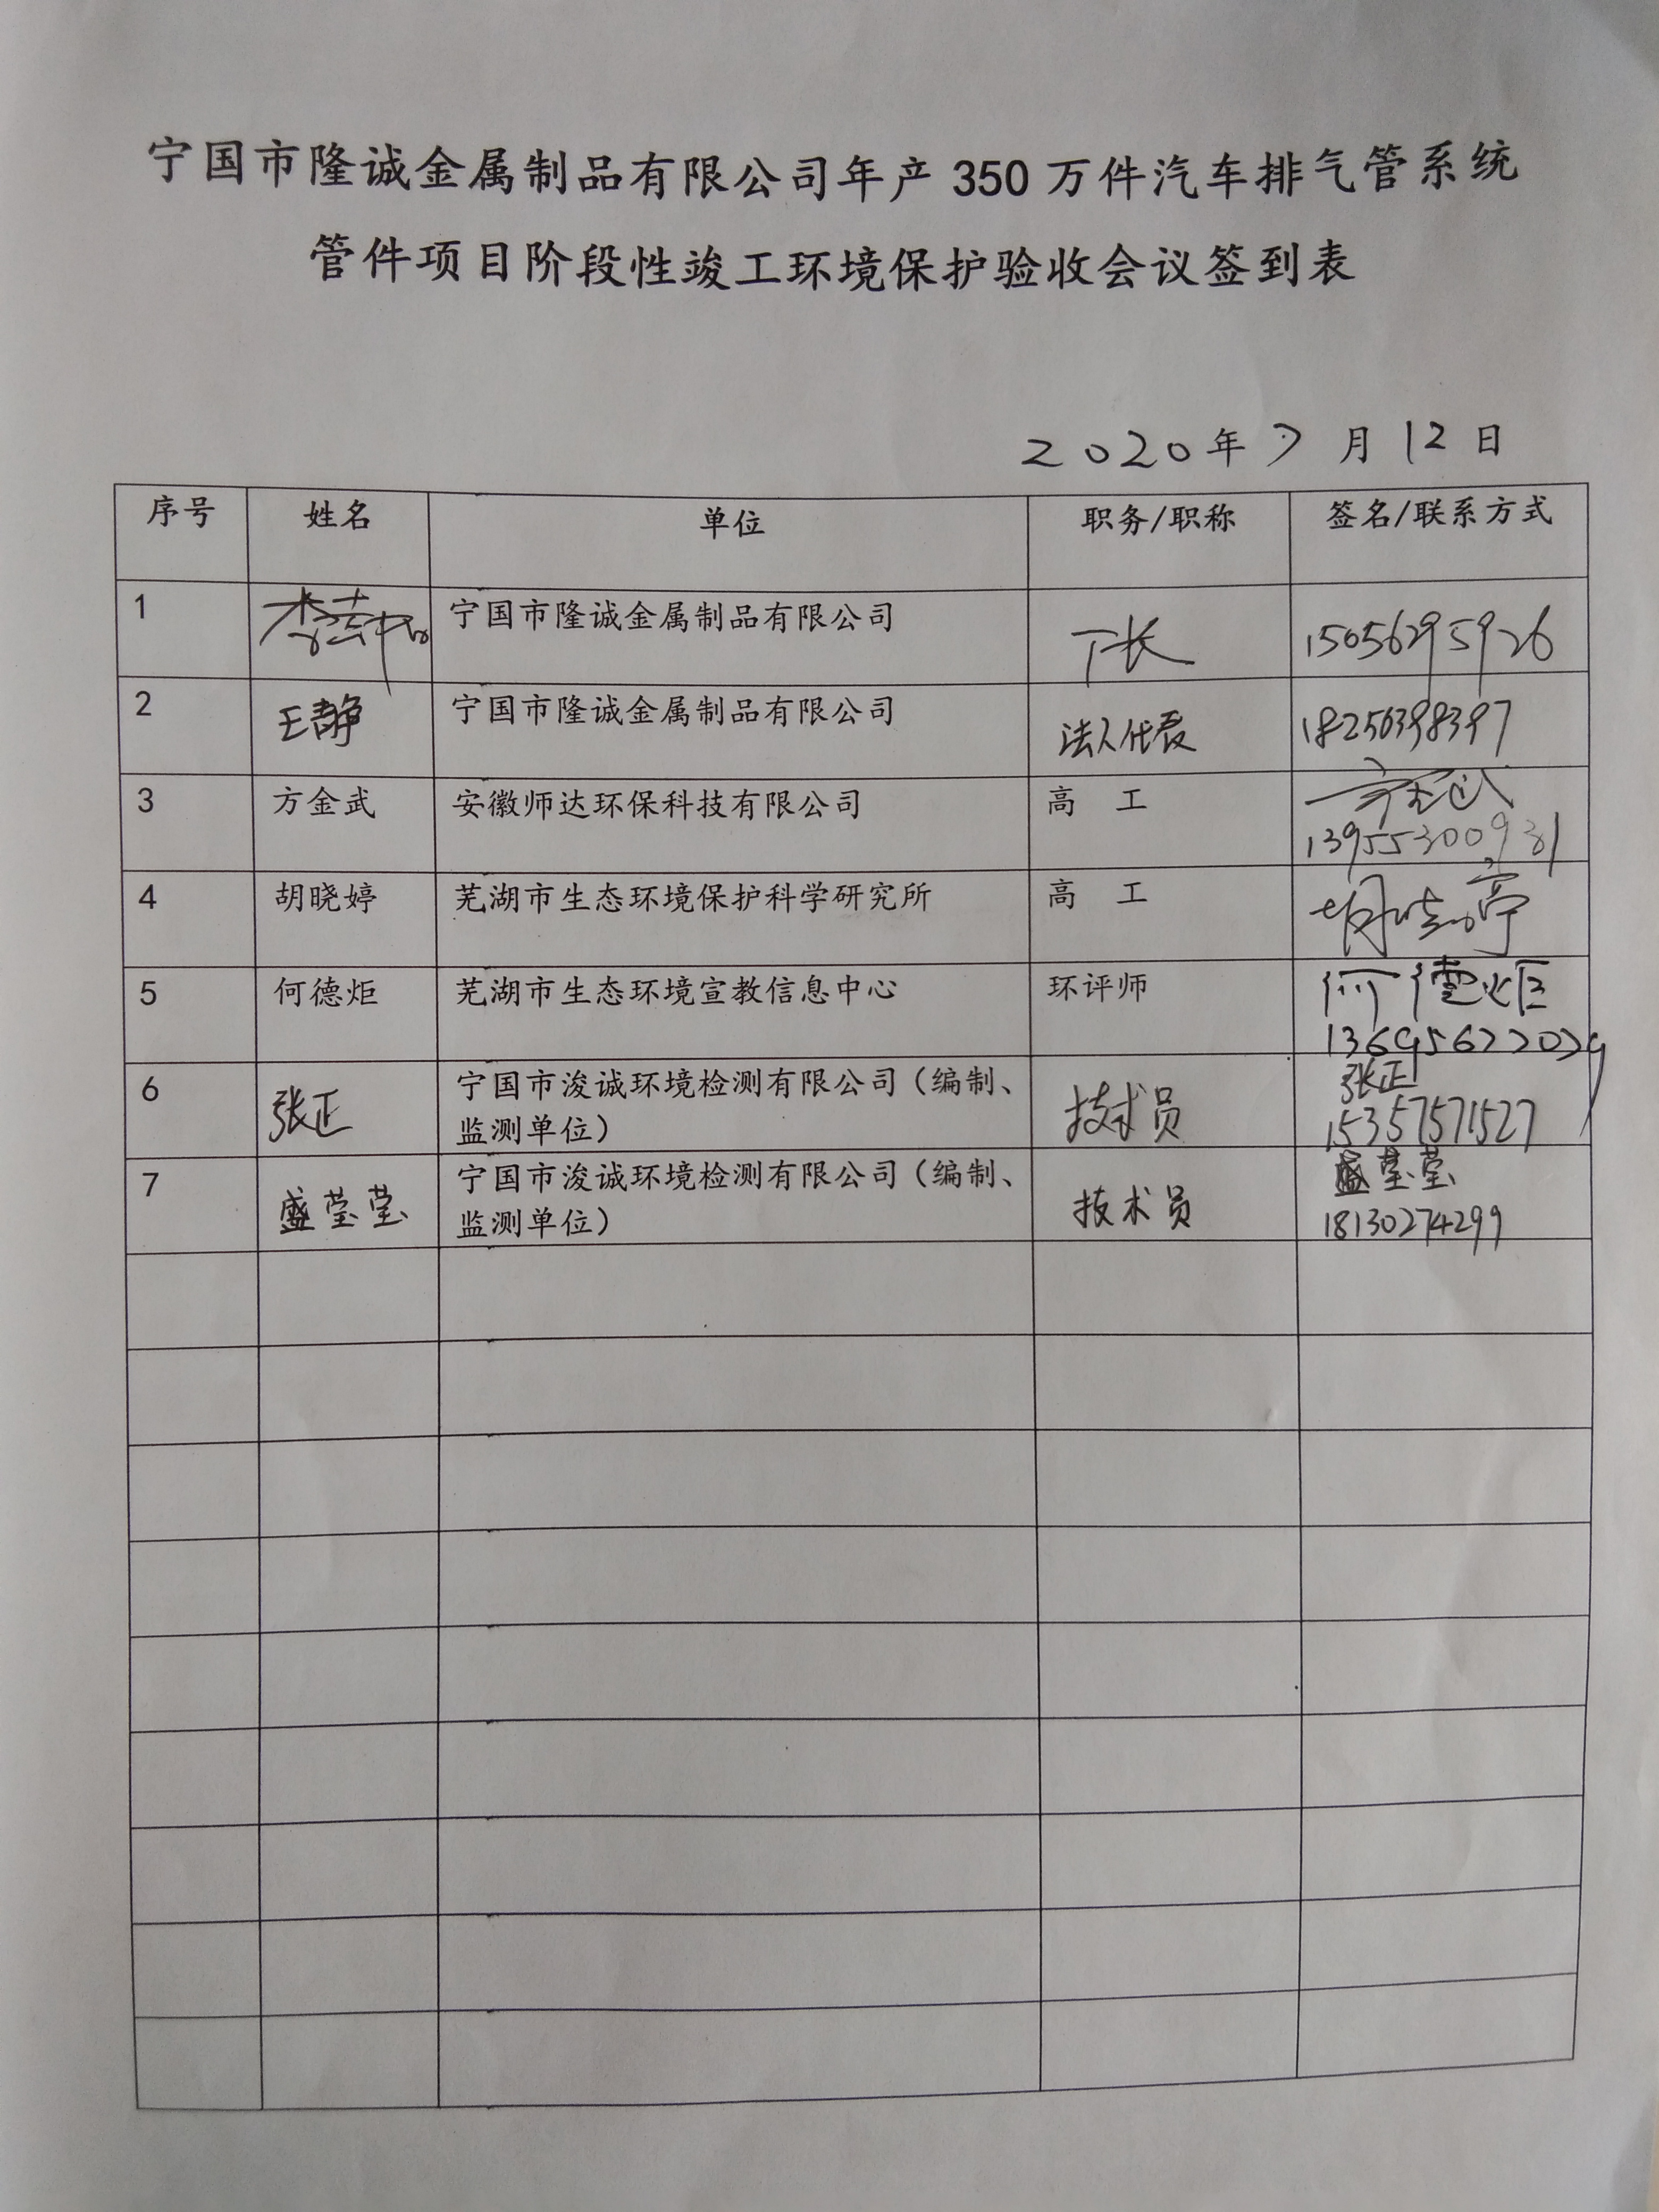 宁国市隆诚金属制品有限公司年产 350 万件汽车排气管系统
管件项目阶段性竣工环境保护验收会议签到表
2020年7月12日
序号 姓名 单位 职务/职称 签名/联系方式
1 宁国市隆诚金属制品有限公司 厂长 15056295926
2 王静 宁国市隆诚金属制品有限公司 法人代表 18256398397
3 方金武 安徽师达环保科技有限公司 高 工 方金武
13955300931
4 胡晓婷 芜湖市生态环境保护科学研究所 高 工 胡晓婷
5 何德炬 芜湖市生态环境宣教信息中心 环评师 何德炬
13695622029
6 张正 宁国市浚诚环境检测有限公司（编制、 技术员 张正
监测单位） 15357571527
7 盛莹莹 宁国市浚诚环境检测有限公司（编制、 技术员 盛莹莹
监测单位） 18130274299